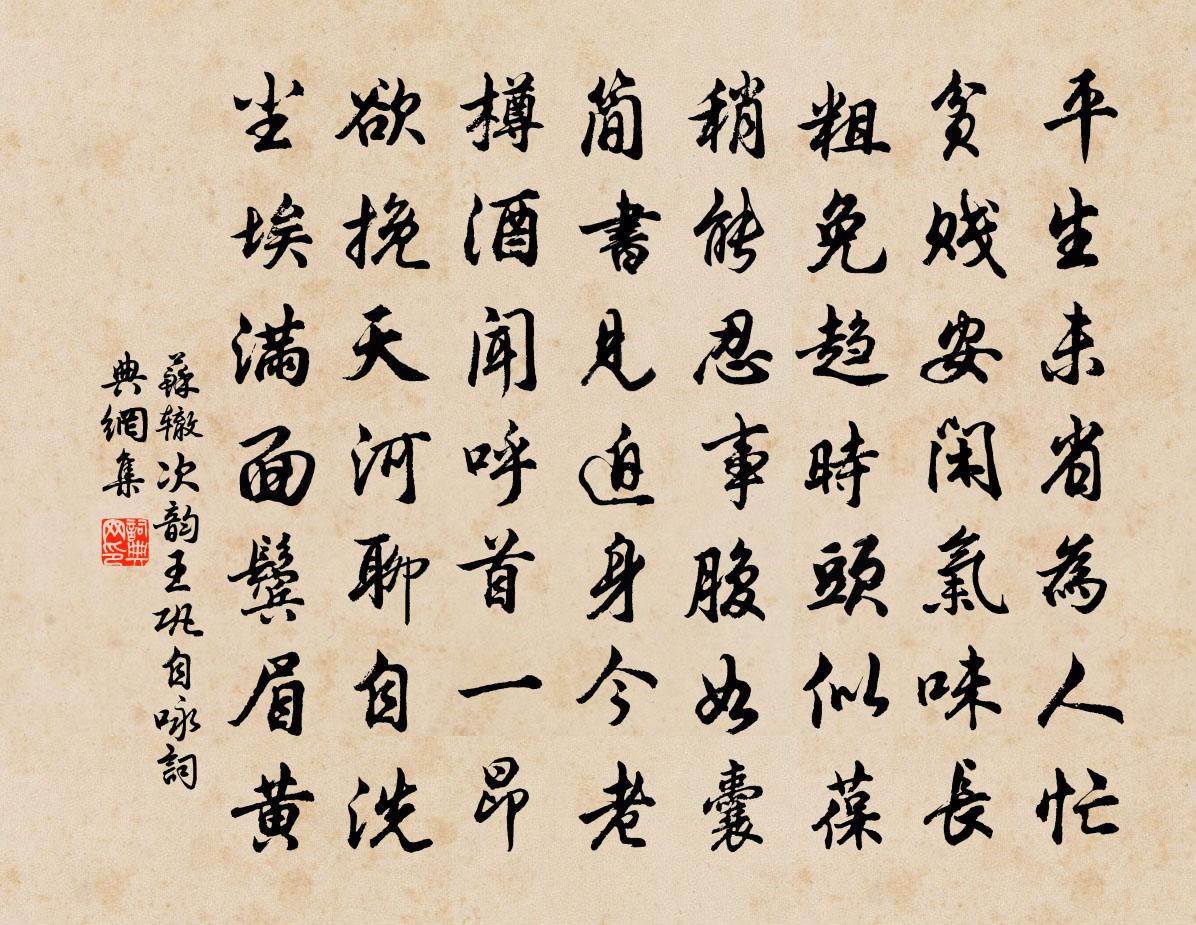 平生未省為人忙
貧賤安閑氣味長
粗免趨時頭似葆
稍能忍事腹如囊
簡書見迫身今老
樽酒聞呼首一昂
欲挽天河聊自洗
尘埃滿面鬢眉黃
蘇辙次韵王巩自咏詞
典網集
詞典
网印